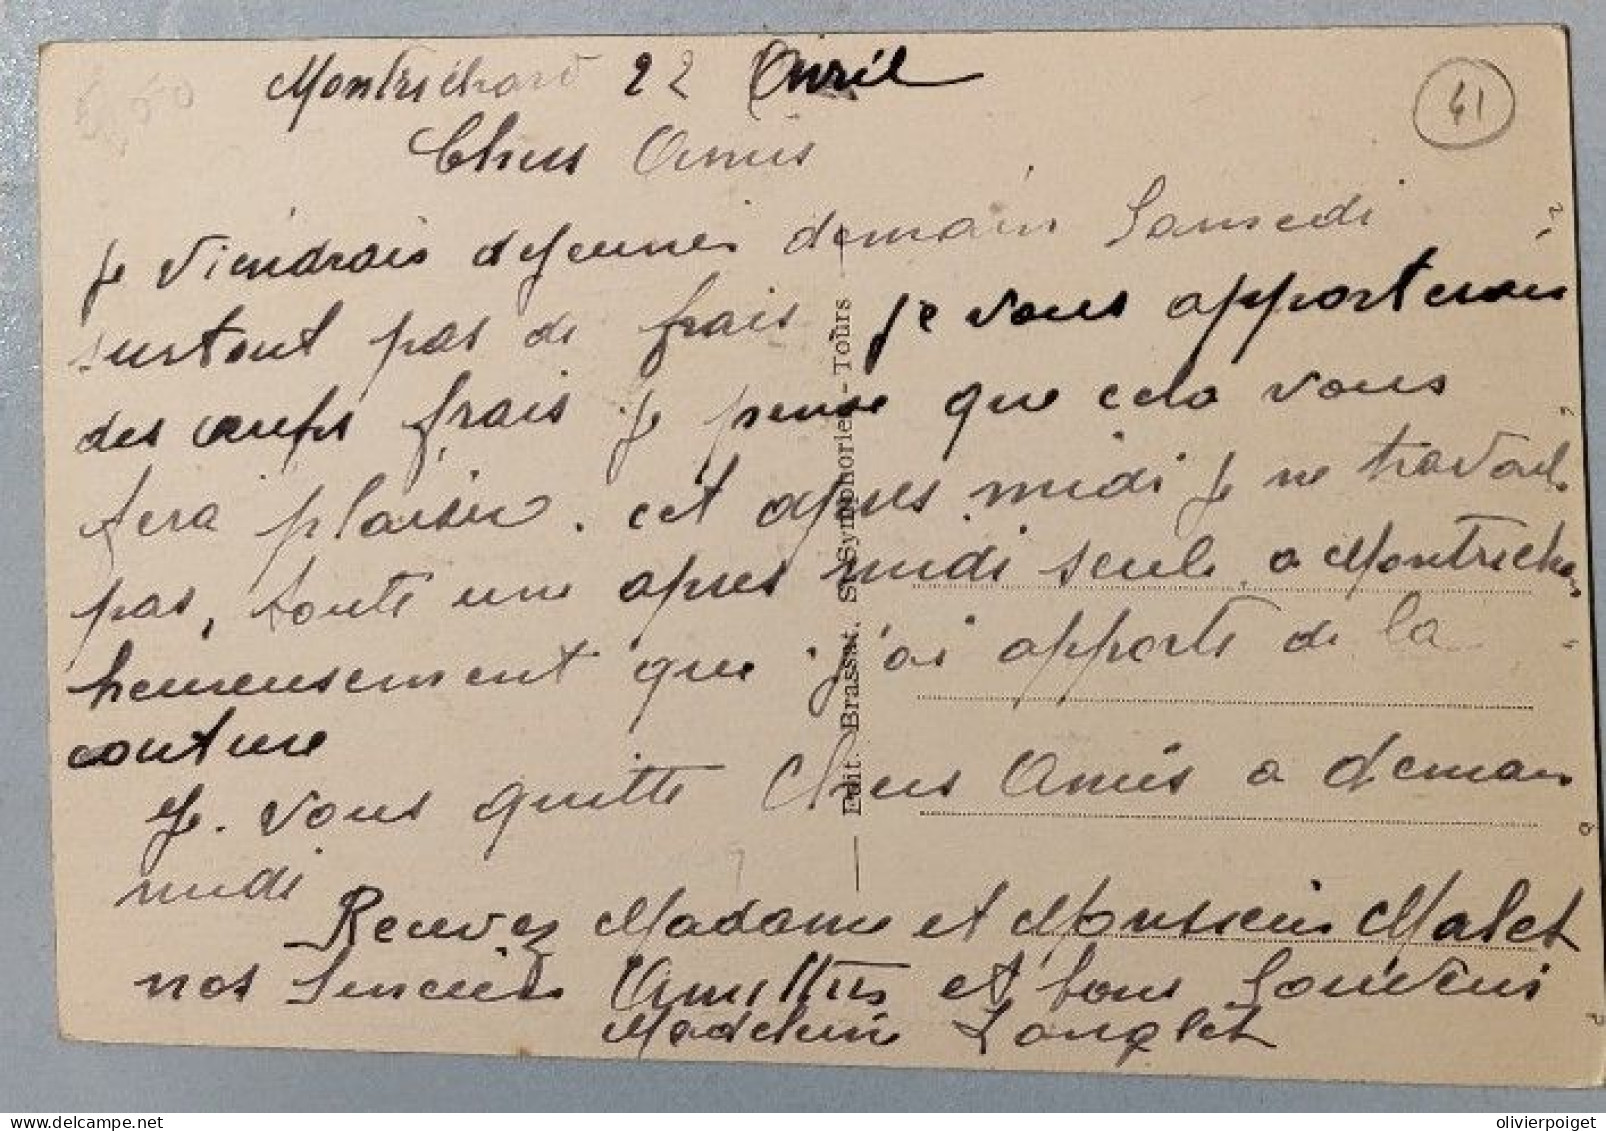 Montrichard 22 Avril
41
Chers Amis
je viendrais dejeuner demain Samedi
surtout pas de frais je vous apporterais
des œufs frais je pense que cela vous
fera plaisir. cet apres midi je ne travail
pas, toute une apres midi seule a Montrichar
heureusement que j'ai apporte de la
couture
je vous quitte Chers Amis a demain
midi
Recevez Madame et Monsieur Malet
nos sinceres Amitiés et bons Souvenir
Madeleine Langlet
Edit. Brassat. St-Symphorien-Tours
olivierpoiget